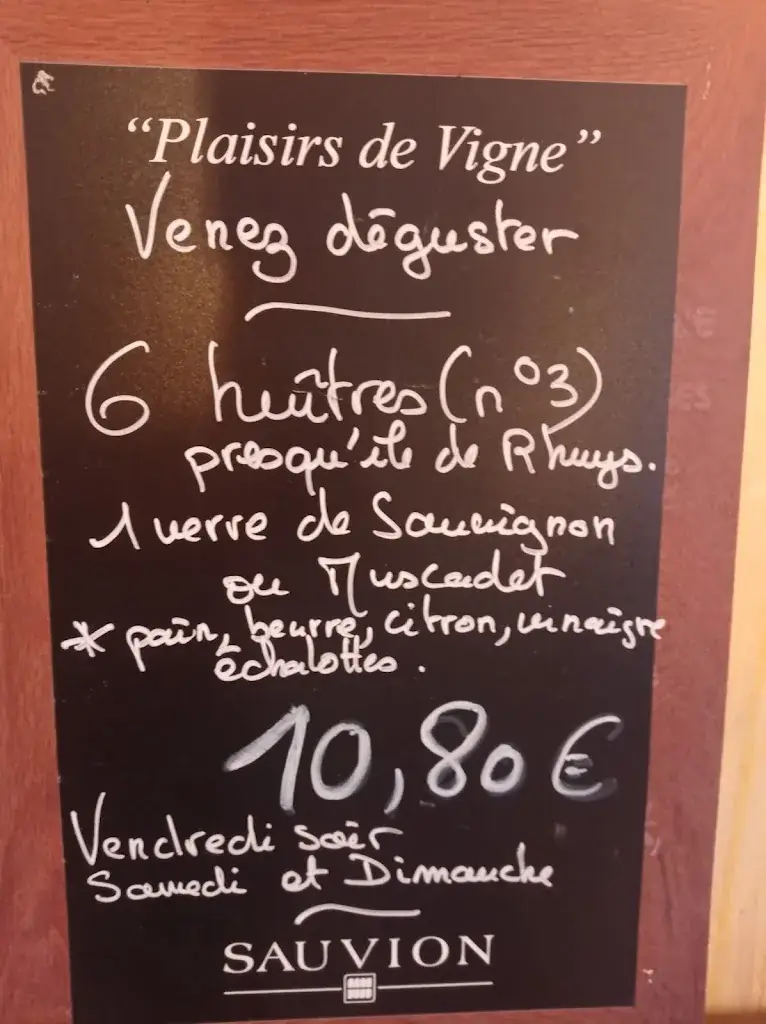 “Plaisirs de Vigne”
Venez déguster
6 huîtres (n°3)
presqu'île de Rhuys.
1 verre de Sauvignon
ou Muscadet
* pain, beurre, citron, vinaigre
échalottes.
10,80 €
Vendredi soir
Samedi et Dimanche
SAUVION